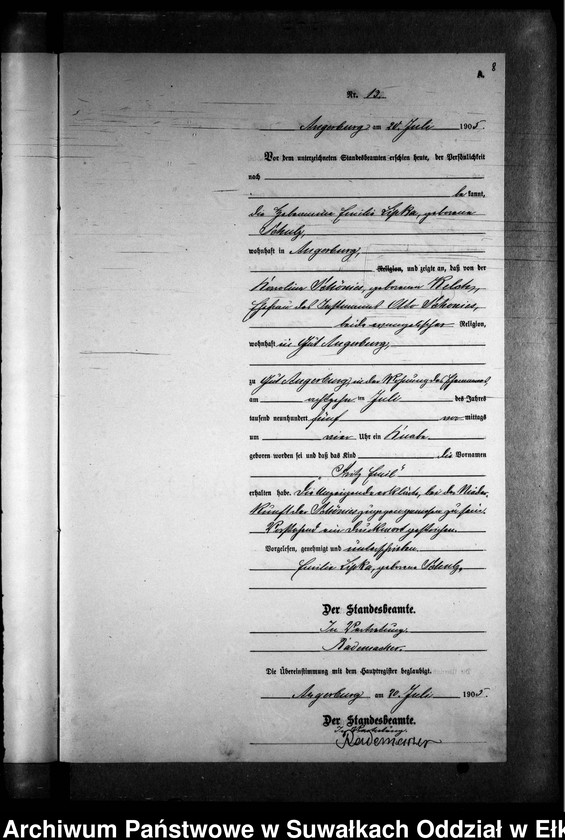 8
A.
Nr. 12.
Angerburg am 20. Juli 1905.
Vor dem unterzeichneten Standesbeamten erschien heute, der Persönlichkeit
nach
bekannt,
die Hebamme Emilie Lipka, geborene
Schulz,
wohnhaft in Angerburg,
Religion, und zeigte an, daß von der
Karoline geborenen
Ehefrau des Instmanns Otto
beide evangelischer Religion,
wohnhaft in Gut Angerburg,
zu Gut Angerburg, in der Wohnung des Ehemannes,
am Juli des Jahres
tausend neunhundert fünf vormittags
um vier Uhr ein Knabe
geboren worden sei und daß das Kind die Vornamen
"Fritz Emil"
erhalten habe. Die Anzeigende erklärte, bei der Nieder-
kunft der zugegen gewesen zu sein.
Vorstehend ein Druckwort gestrichen.
Vorgelesen, genehmigt und unterschrieben.
Emilie Lipka, geborene Schulz,
Der Standesbeamte.
In Vertretung.
Rademacher.
Die Übereinstimmung mit dem Hauptregister beglaubigt.
Angerburg am 20. Juli 1905.
Der Standesbeamte.
In Vertretung.
Rademacher
Archiwum Państwowe w Suwałkach Oddział w Ełk